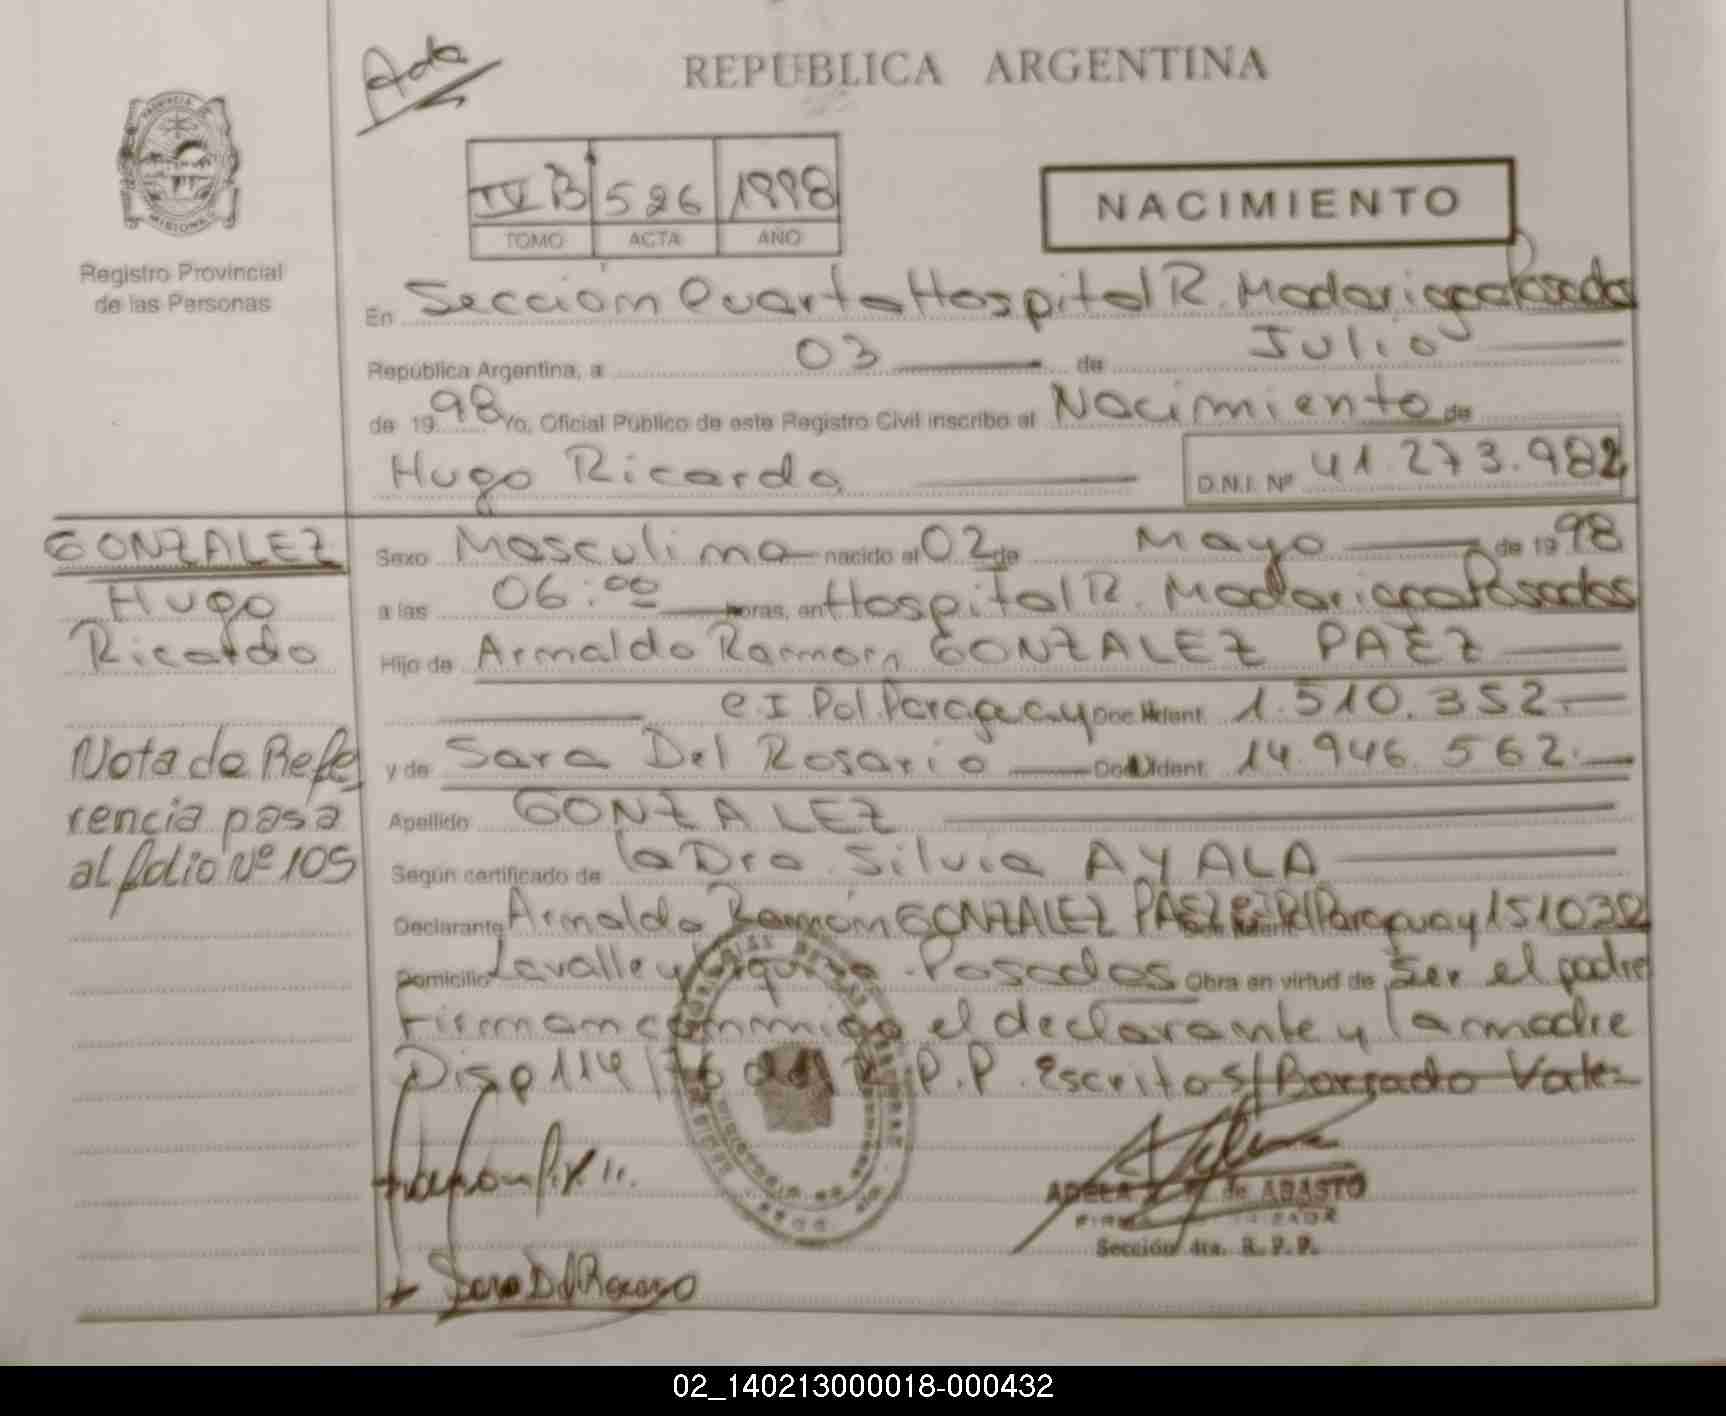 Ada
REPUBLICA ARGENTINA
PROVINCIA
MISIONES
Registro Provincial
de las Personas
IV B 526 1998
TOMO ACTA AÑO
NACIMIENTO
En Sección Cuarta Hospital R. Madariaga Posadas
República Argentina, a 03 de Julio
de 19 98 Yo, Oficial Público de este Registro Civil inscribo el Nacimiento de
Hugo Ricardo D.N.I. Nº 41.273.982
GONZALEZ
Hugo
Ricardo
Nota de Refe
rencia pasa
al folio Nº 105
Sexo Masculino nacido el 02 de Mayo de 19 98
a las 06:00 horas, en Hospital R. Madariaga Posadas
Hijo de Arnaldo Ramon GONZALEZ PAEZ
C I Pol. Paraguay Doc Ident 1.510.352.
y de Sara Del Rosario Doc Ident 14.946.562.
Apellido GONZALEZ
Según certificado de la Dra. Silvia AYALA
Declarante Arnaldo Ramón GONZALEZ PAEZ Paraguay
Domicilio Lavalle y Posadas Obra en virtud de Ser el padre
Firman conmigo el declarante y la madre
Disp 114/76 R.P.P. Escritos/Borrado Vale-
Sara Del Rosario
ADELA de ABASTO
Sección 4ta. R. P. P.
02_140213000018-000432